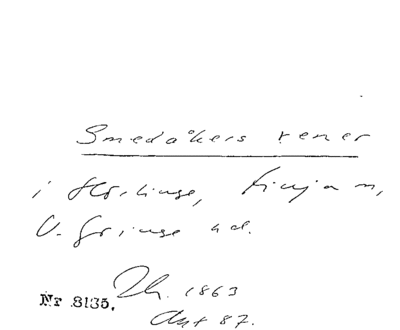 Smedåkers rener
i Hörlinge, Finja sn,
V. Göinge hd.
Nr 8135. 1863
Akt 87.